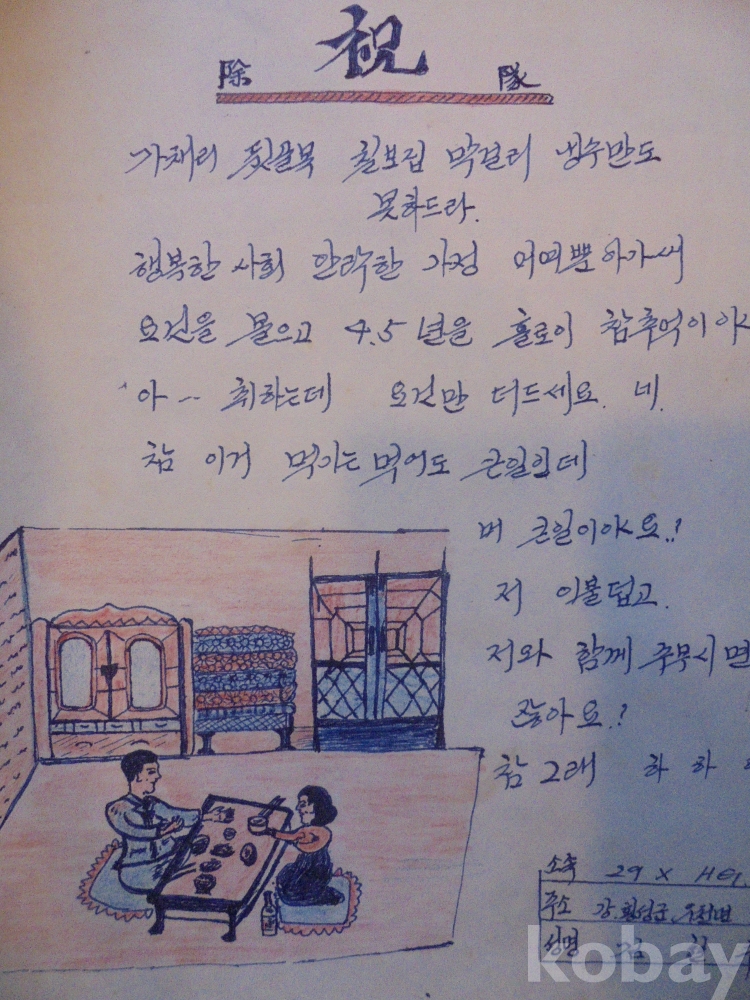 祝
除 隊
가재리 뒷골목 칠보집 막걸리 냉수만도
못하드라.
행복한 사회 안락한 가정 어여쁜 아가씨
요건을 몰으고 4.5년을 홀로이 참 추억이야
아 -- 취하는데 요건만 더드세요. 네.
참 이거 먹기는 먹어도 큰일인데
뭐 큰일이야요.!
저 이불덥고.
저와 함께 주무시면
괞아요.?
참 그래 하 하
소속 29 X
주소 강. 횡성군. 우천면
성명 김
kobay